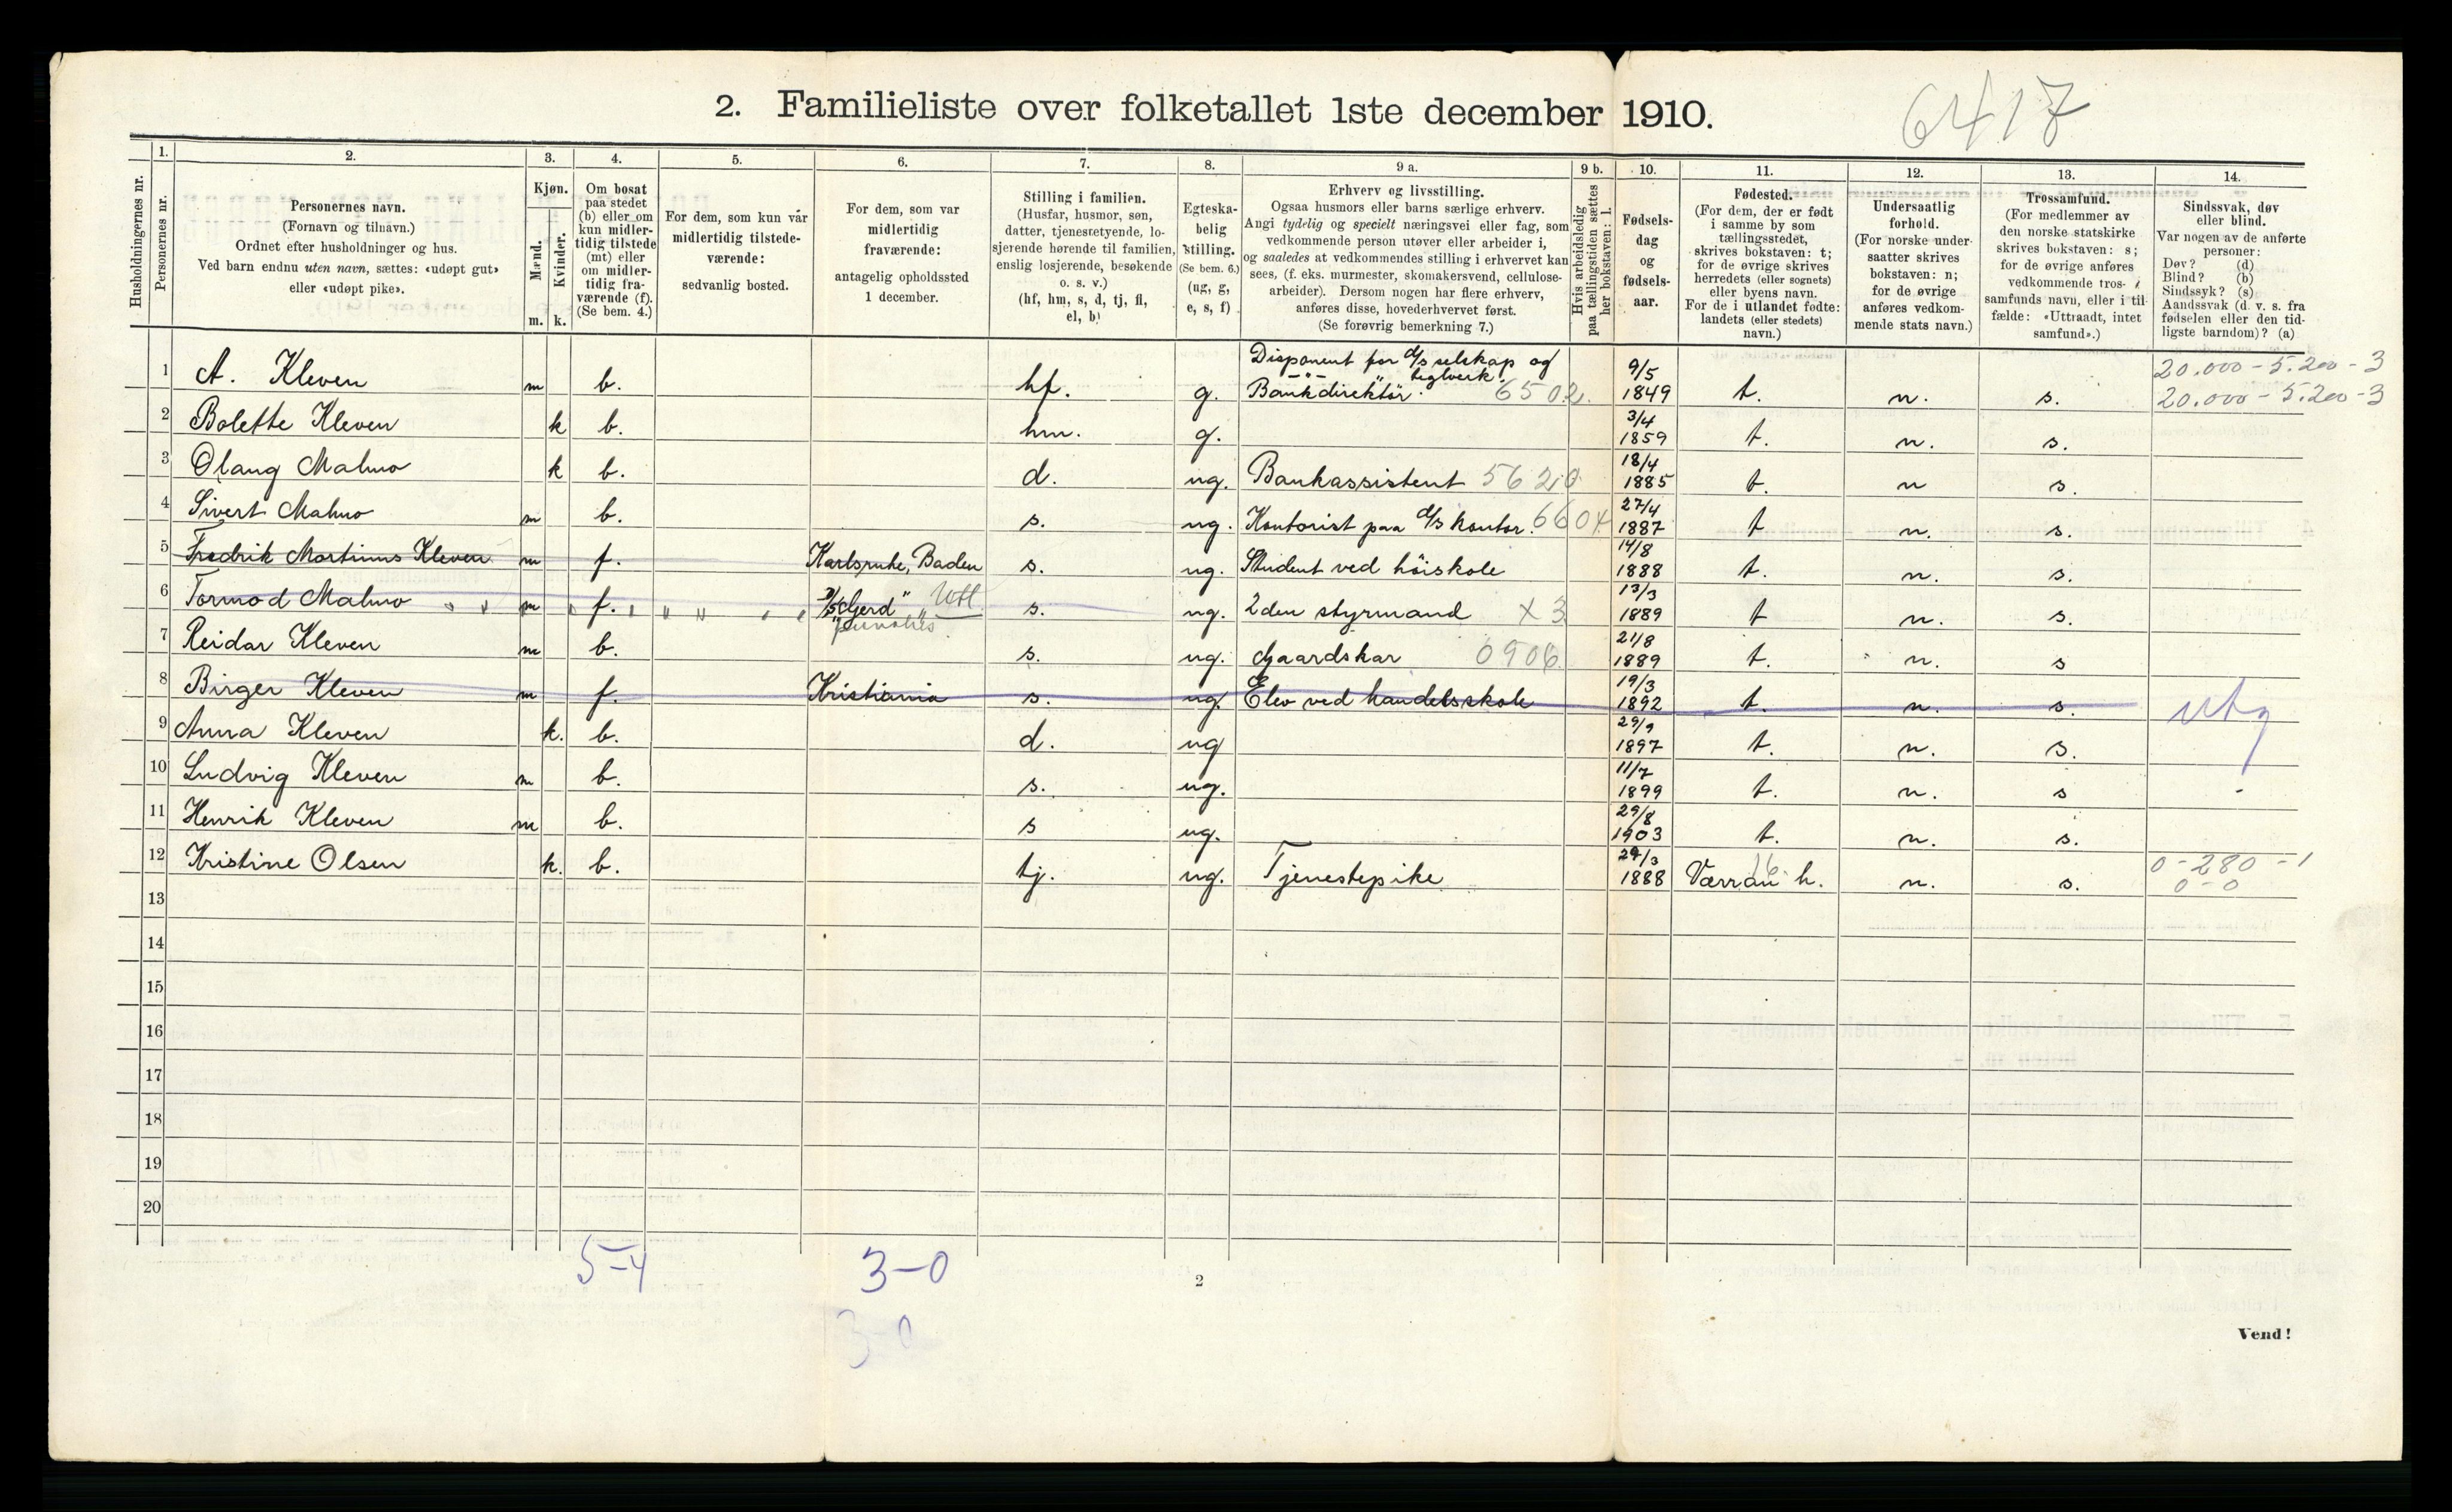 2. Familieliste over folketallet 1ste december 1910.
6417
Husholdningernes nr.
1. Personernes nr.
2. Personernes navn. (Fornavn og tilnavn.) Ordnet efter husholdninger og hus. Ved barn endnu uten navn, sættes: «udøpt gut» eller «udøpt pike».
3. Kjøn. Mænd. Kvinder. m. k.
4. Om bosat paa stedet (b) eller om kun midlertidig tilstede (mt) eller om midlertidig fraværende (f). (Se bem. 4.)
5. For dem, som kun var midlertidig tilstedeværende: sedvanlig bosted.
6. For dem, som var midlertidig fraværende: antagelig opholdssted 1 december.
7. Stilling i familien. (Husfar, husmor, søn, datter, tjenestetyende, losjerende hørende til familien, enslig losjerende, besøkende o. s. v.) (hf, hm, s, d, tj, fl, el, b)
8. Egteskabelig stilling. (Se bem. 6.) (ug, g, e, s, f)
9 a. Erhverv og livsstilling. Ogsaa husmors eller barns særlige erhverv. Angi tydelig og specielt næringsvei eller fag, som vedkommende person utøver eller arbeider i, og saaledes at vedkommendes stilling i erhvervet kan sees, (f. eks. murmester, skomakersvend, cellulosearbeider). Dersom nogen har flere erhverv, anføres disse, hovederhvervet først. (Se forøvrig bemerkning 7.)
9 b. Hvis arbeidsledig paa tællingstiden sættes her bokstaven: l.
10. Fødselsdag og fødselsaar.
11. Fødested. (For dem, der er født i samme by som tællingsstedet, skrives bokstaven: t; for de øvrige skrives herredets (eller sognets) eller byens navn. For de i utlandet fødte: landets (eller stedets) navn.)
12. Undersaatlig forhold. (For norske undersaatter skrives bokstaven: n; for de øvrige anføres vedkommende stats navn.)
13. Trossamfund. (For medlemmer av den norske statskirke skrives bokstaven: s; for de øvrige anføres vedkommende trossamfunds navn, eller i tilfælde: «Uttraadt, intet samfund».)
14. Sindssvak, døv eller blind. Var nogen av de anførte personer: Døv? (d) Blind? (b) Sindssyk? (s) Aandssvak (d. v. s. fra fødselen eller den tidligste barndom)? (a)
1 A. Kleven m b. hf. g. Disponent for d/s selskap og -"- " teglverk. Bankdirektör. 6502. 9/5 1849 t. n. s. 20.000 - 5.200 - 3 20.000 - 5.200 - 3
2 Bolette Kleven k b. hm. g. 3/4 1859 t. n. s.
3 Olaug Malmo k b. d. ug. Bankassistent 5620 18/4 1885 t. n s.
4 Sivert Malmo m b. s. ug. Kontorist paa d/s kontor. 6604 27/4 1887 t n. s.
5 Fredrik Martinus Kleven m f. Karlsruhe, Baden s. ug. Student ved höiskole 14/8 1888 t. n. s.
6 Tormod Malmo m f. D/S "Gjerd" Utl. s. ug. 2den styrmand X3 13/3 1889 t n. s.
7 Reidar Kleven m b. s. ug. Gaardskar 0906 21/8 1889 t. n. s
8 Birger Kleven m f. Kristiania s. ug. Elev ved handelsskole 19/3 1892 t. n. s. utg
9 Anna Kleven k. b. d. ug 29/9 1897 t. n. s.
10 Ludvig Kleven m b. s. ug. 11/7 1899 t. n. s -
11 Henrik Kleven m b. s ug. 29/8 1903 t. n. s.
12 Kristine Olsen k. b. tj. ug. Tjenestepike 29/3 1888 Værran h. 16 n. s. 0 - 280 - 1 0 - 0
13
14
15
16
17
18
19
20
5-4
3-0
3-0
2
Vend!